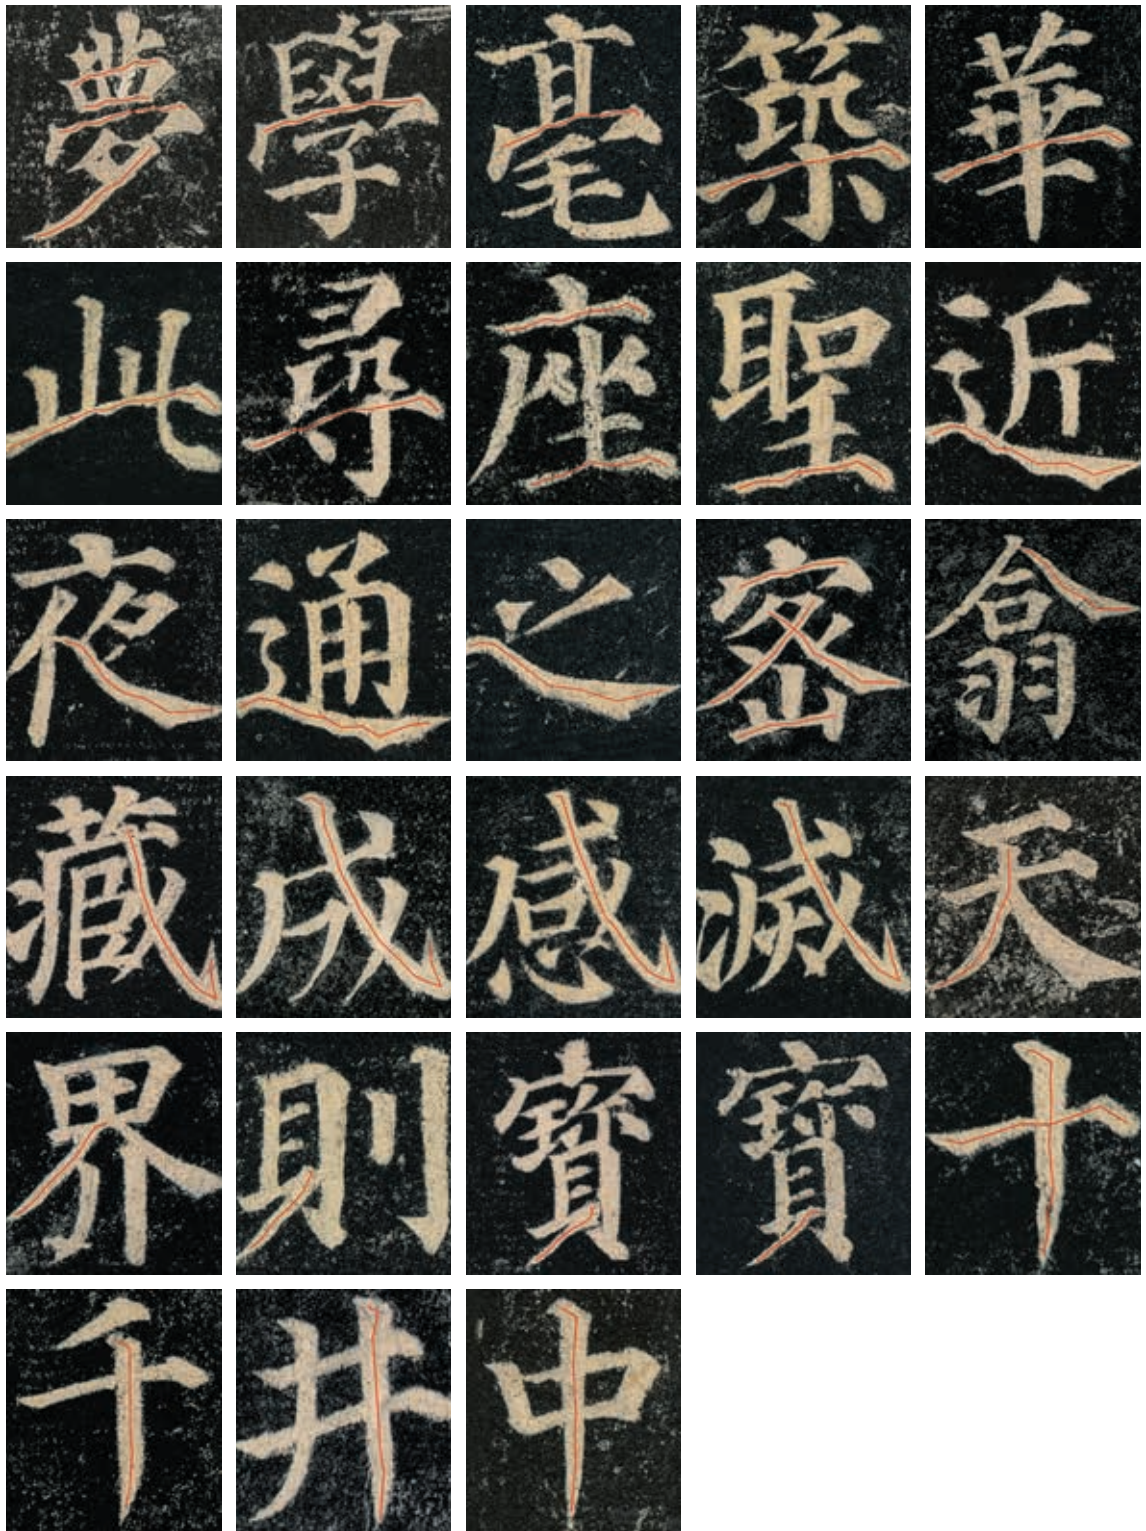 夢學毫築華
此尋座聖近
夜通之密翕
藏成感滅天
界則寶寶十
千井中